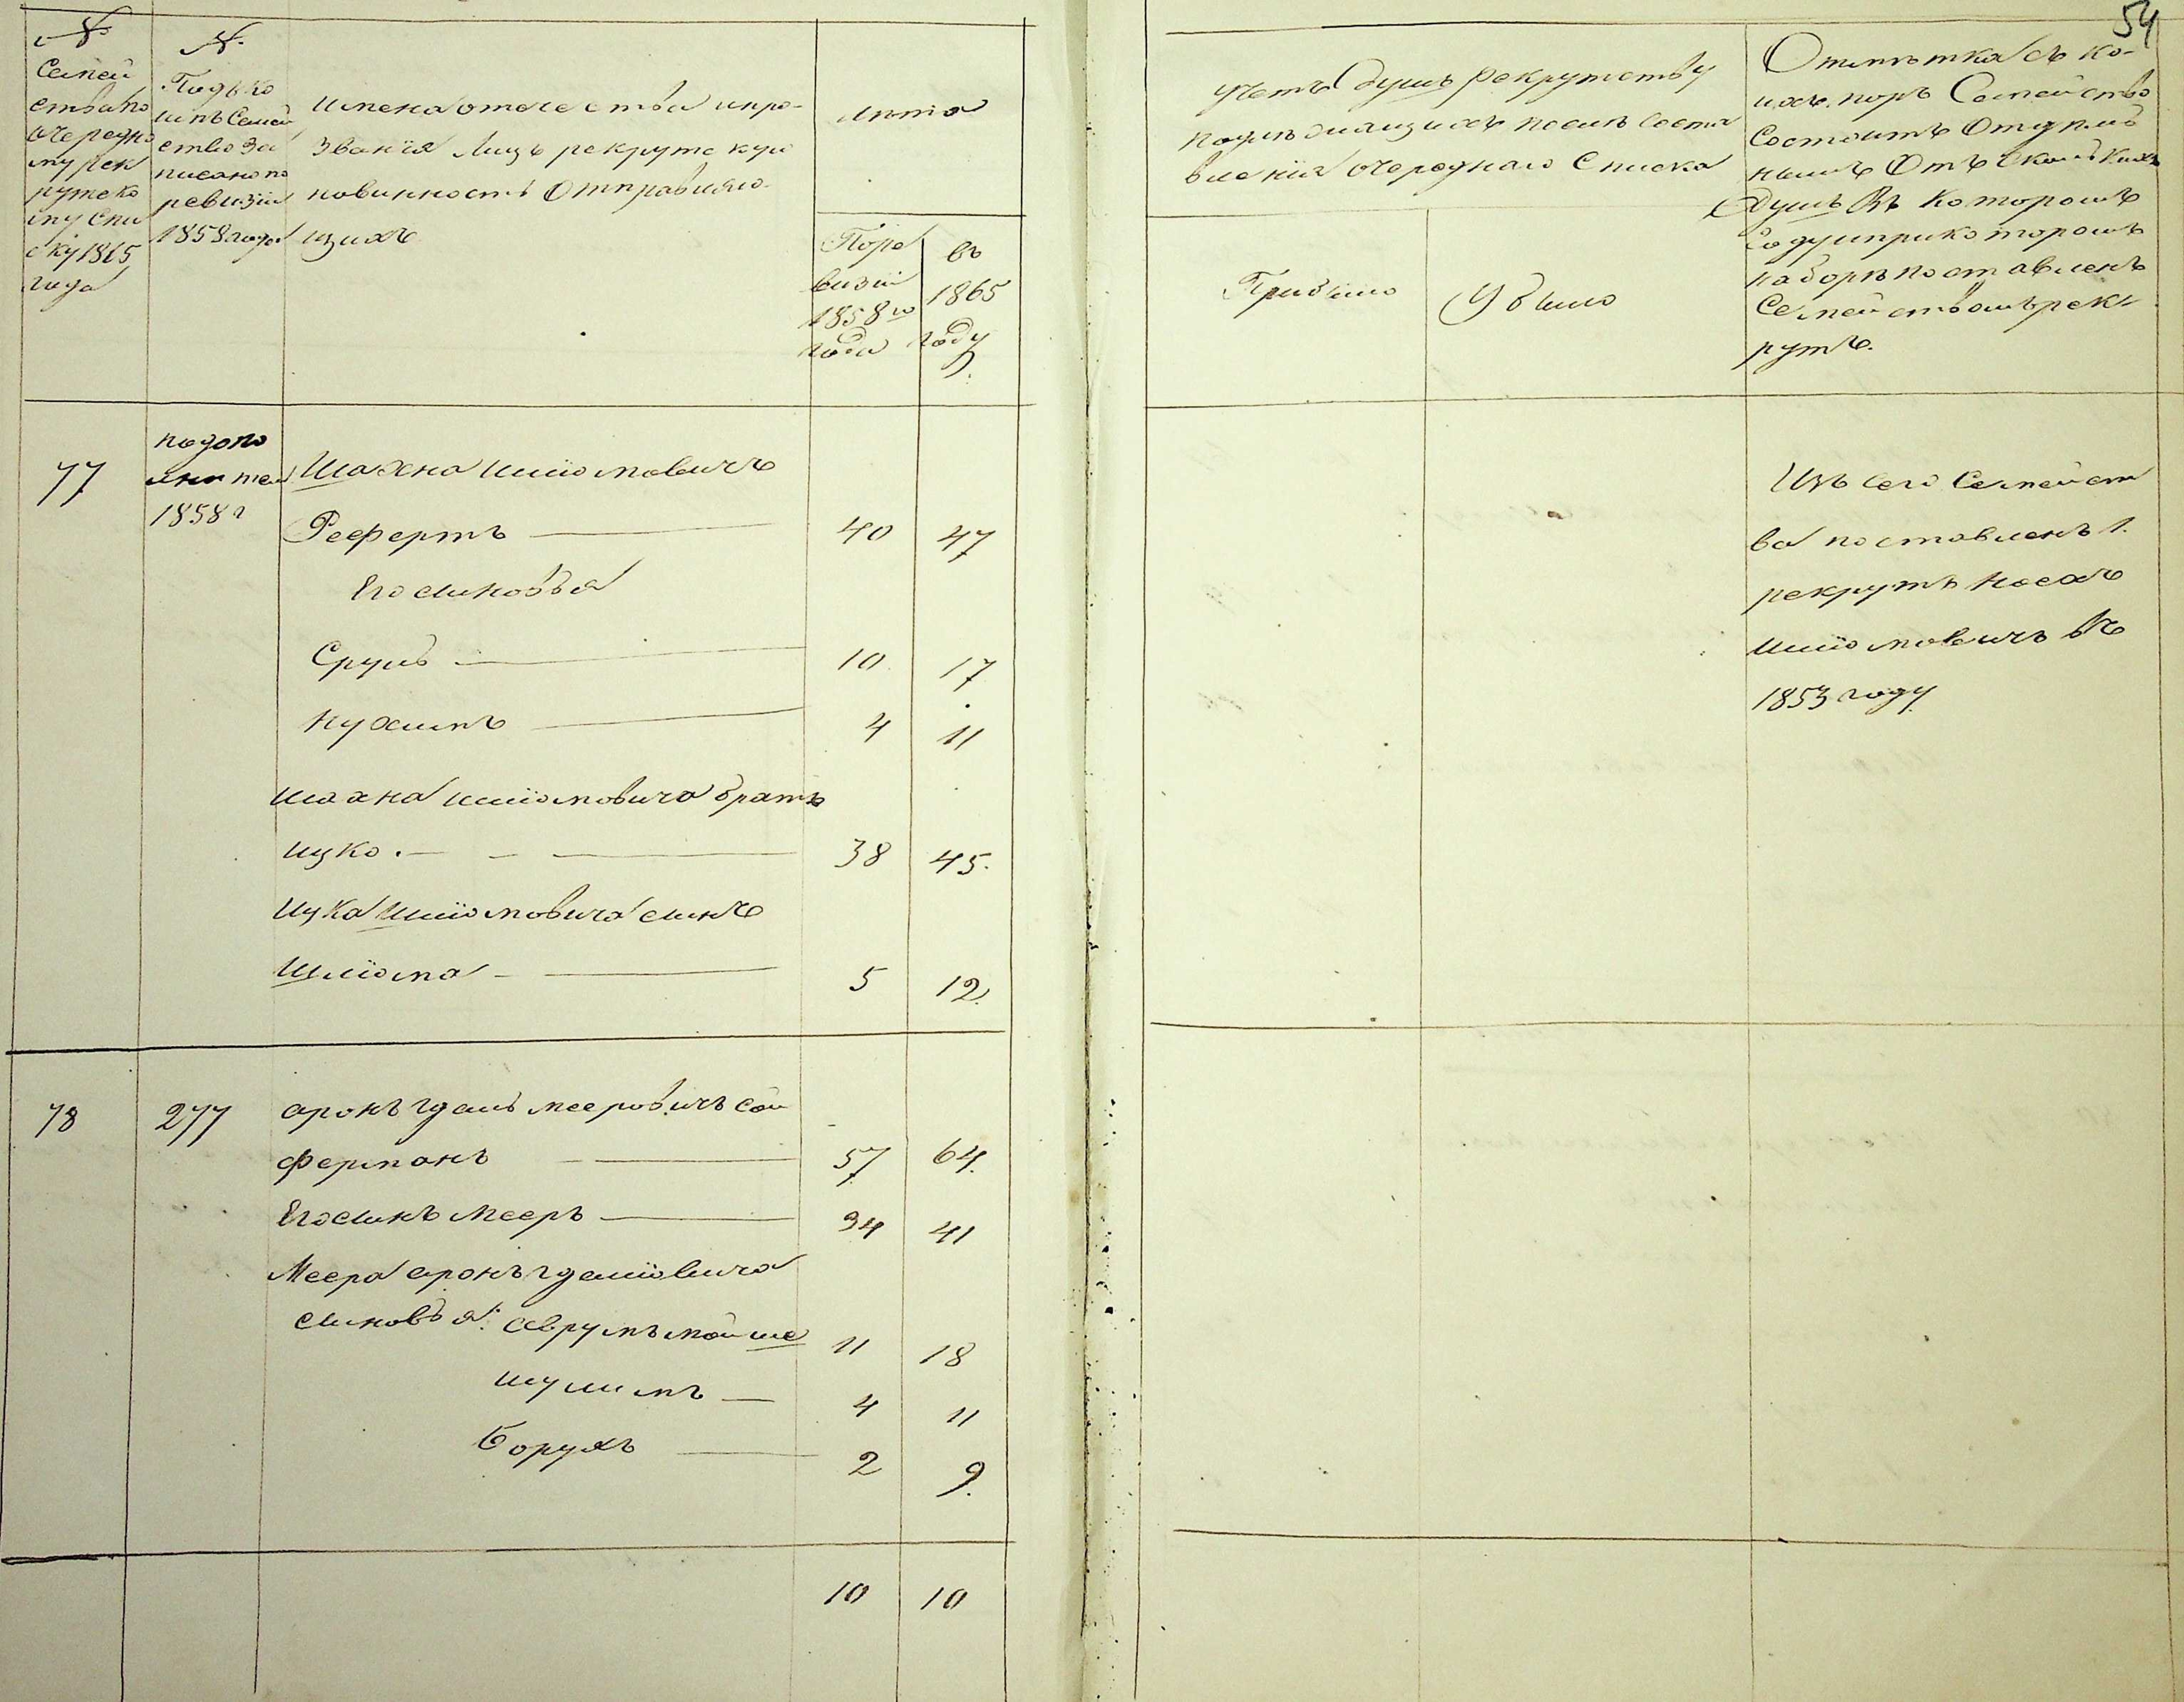 54
№
Семей
ства по
очередно
му рек
рутско
му спи
ску 1865
года
№
Подъ ко
имъ Семей
ство за
писано по
ревизiи
1858 года
имена отечества и про-
званiя лицъ рекрутскую
повинность отправляю-
щихъ
лѣта
По ре
визiи
1858 го
года
въ
1865
году
учетъ душъ рекрутству
подлѣжащихъ послѣ соста
вленiя очереднаго списка
Прибыло
Убыло
Отмѣтка съ ко-
ихъ поръ Семейство
состоитъ отдѣль
нымъ отъ сколькихъ
душъ въ которомъ
году и при которомъ
наборѣ поставленъ
Семействомъ рек-
рутъ.
77
по допо
лнител
1858 г
Шахна Шлiомовичъ
Рефертъ 40 47
Его сыновья
Сруль 10 17
Нухимъ 4 11
Шахна Шлiомовича братъ
Ицко 38 45.
Ицка Шлiомовича сынъ
Шлiома 5 12.
Изъ сего Семейст
ва поставленъ 1.
рекрутъ Носохъ
Шлiомовичъ въ
1853 году
78 277 Аронъ Гдаль Мееровичъ Сой
ферманъ 57 64.
Его сынъ Мееръ 34 41
Меера Аронъ Гдалiовича
сыновья: Аврумъ Мойше 11 18
Шулимъ 4 11
Борухъ 2 9.
10 10